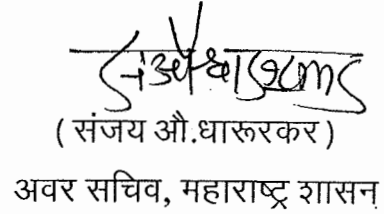 ( संजय औ.धारूरकर )
अवर सचिव, महाराष्ट्र शासन